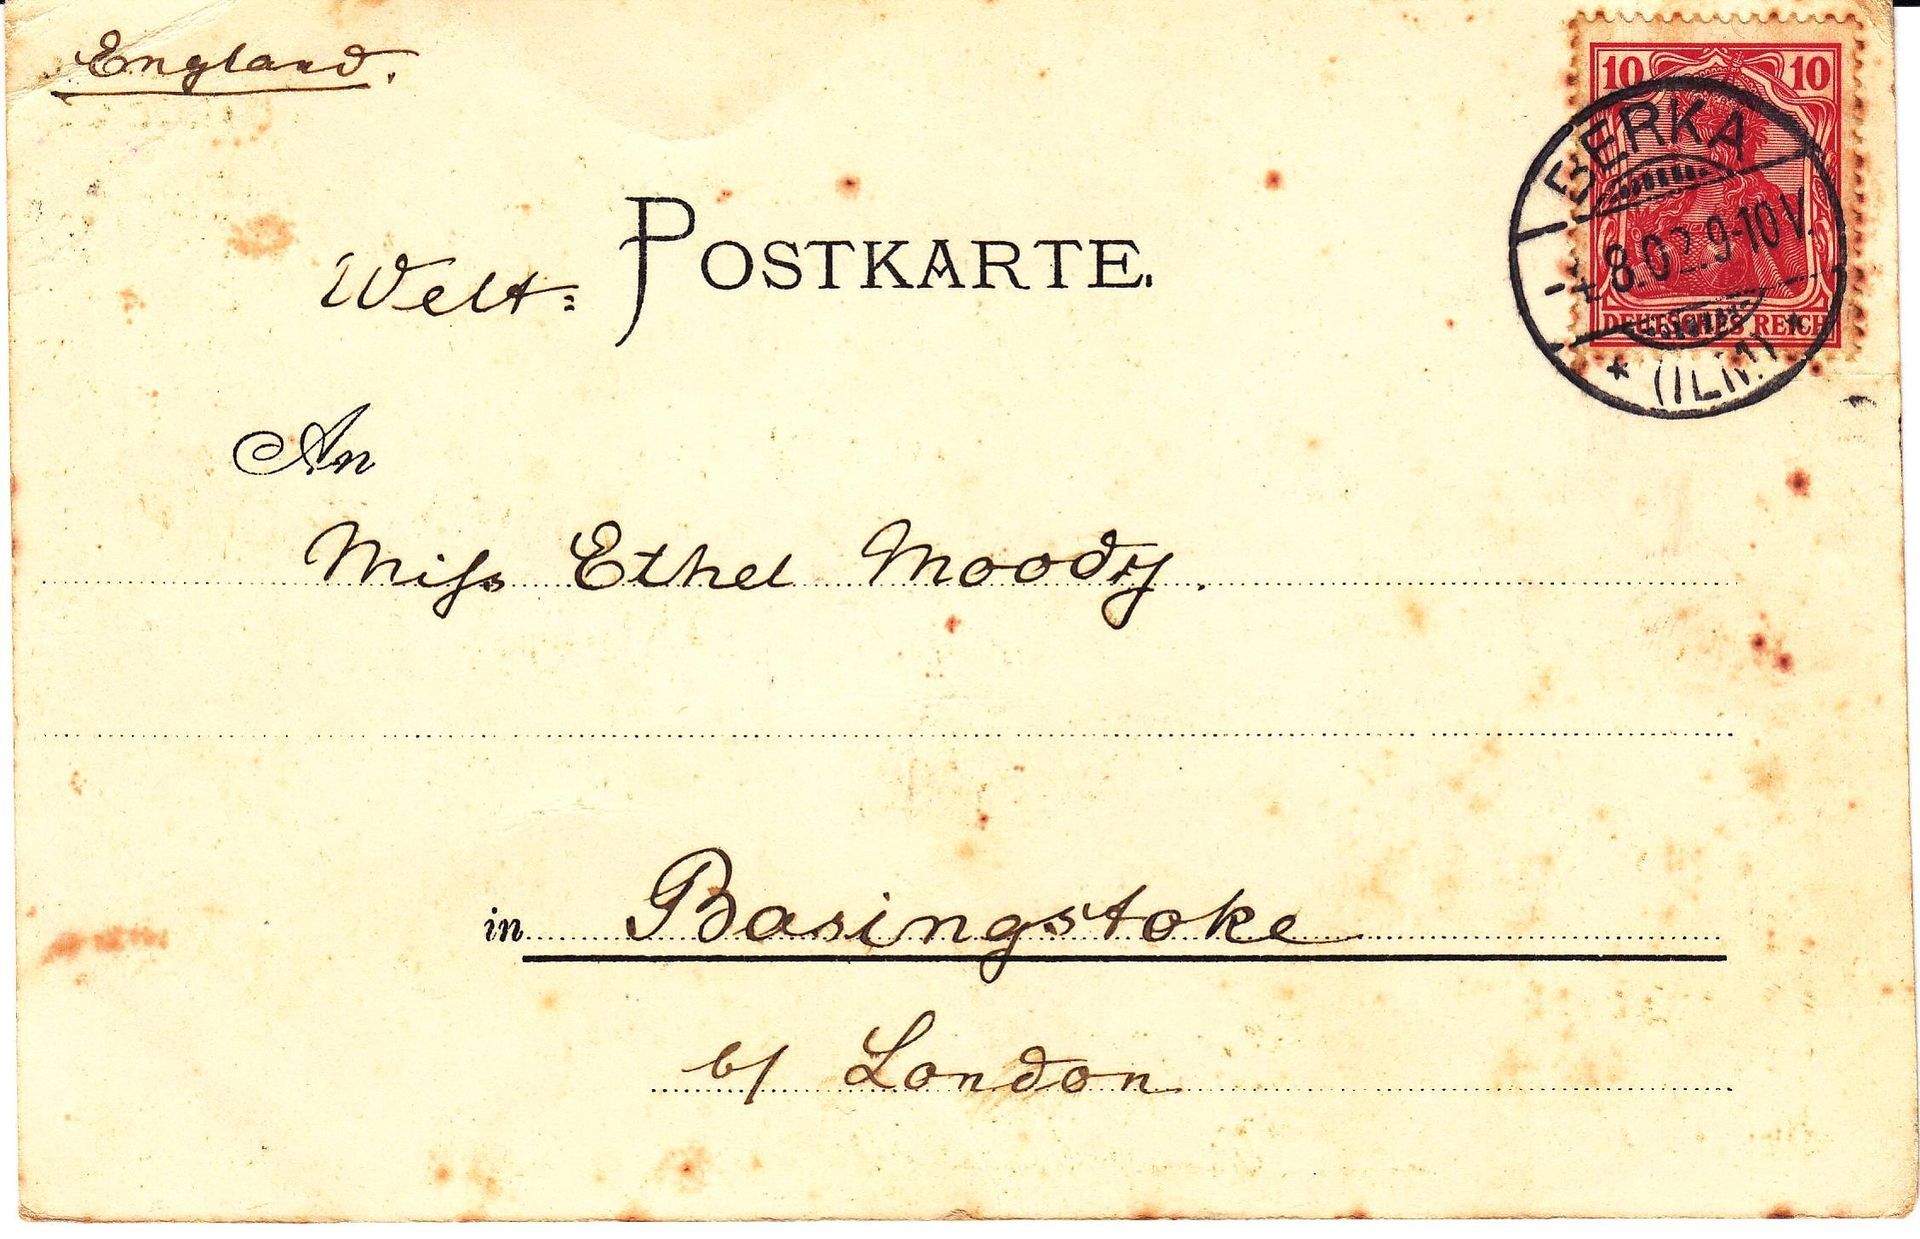 England.
10 10
BERKA
8.02.9-10V.
DEUTSCHES REICH
* (ILM) *
Welt= POSTKARTE.
An
Miſs Ethel Moody.
in Basingstoke
b/ London